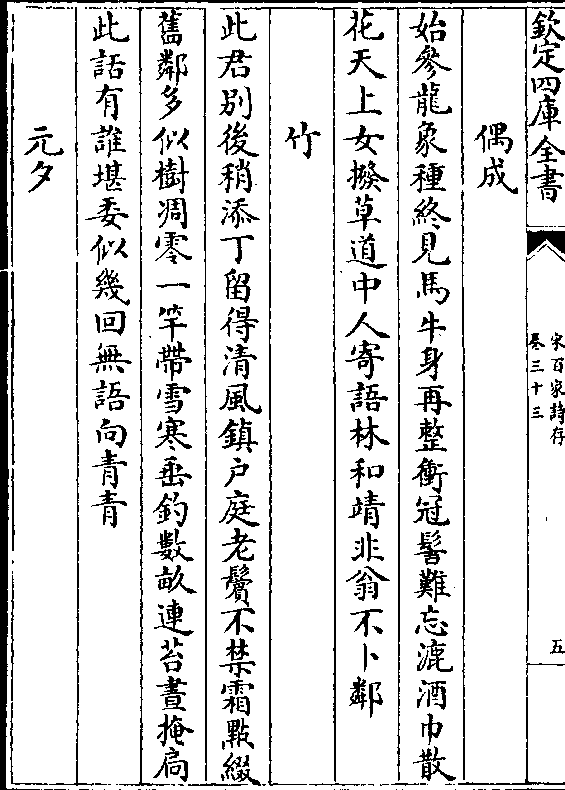 欽定四庫全書
宋百家詩存
卷三十三
五
偶成
始參龍象種終見馬牛身再整衝冠髻難忘漉酒巾散
花天上女撥草道中人寄語林和靖非翁不卜鄰
竹
此君別後稍添丁留得清風鎮户庭老鬢不禁霜點綴
舊鄰多似樹凋零一竿帶雪寒垂釣數畝連苔晝掩扃
此話有誰堪委似幾回無語向青青
元夕